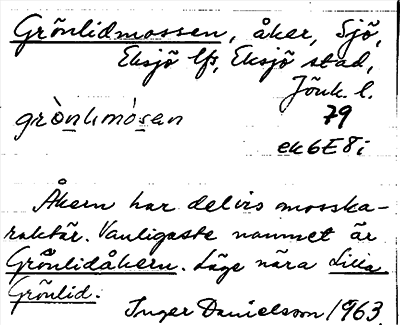 Grönlidmossen, åker, Sjö,
Eksjö lfs, Eksjö stad,
Jönk. l.
79
grò̀nlımósan
ek6E8i
Åkern har delvis mosska-
raktär. Vanligaste namnet är
Grönlidåkern. Läge nära Lilla
Grönlid.
Inger Danielsson 1963